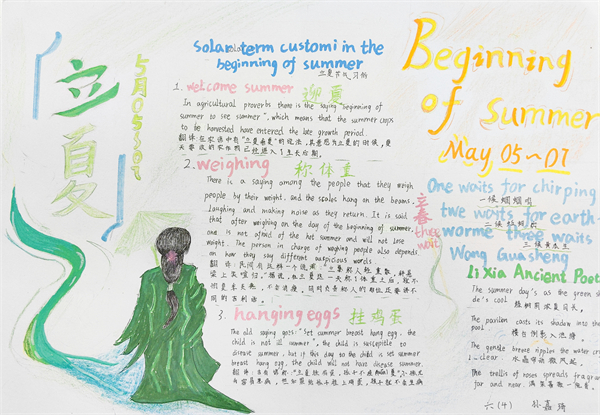 立夏
5月05~07
Solar term customi in the
beginning of summer
立夏节气习俗
1. welcome summer 迎夏
In agricultural proverbs there is the saying "beginning of
summer to see summer", which means that the summer crops
to be harvested have entered the late growth period.
翻译:在农谚中有"立夏看夏"的说法,其意思为立夏的时候,夏
2. weighing 称体重
There is a saying among the people that they weigh
people by their weight, and the scales hang on the beams
laughing and making noise as they return. It is said
that after weighing on the day of the beginning of summer
one is not afraid of the hot summer and will not lose
weight. The person in charge of weighing people also depends
on how they say different auspicious words.
3. hanging eggs 挂鸡蛋
The old saying goes: "Set summer breast hung egg, the
child is not ill summer", the child is susceptible to
disease summer, but if this day so the child is set summer
breast hang egg, the child will not have disease summer.
Beginning
of Summer
May 05~07
立春
three
wait
One waits for chirping
一候蝈蝈鸣
twe waits for earth-
worme three waits
三候黄瓜生
Wang Guasheng
Li Xia Ancient Poet
The summer day's as the green sh
de's cool
The pavilion casts its shadow into the
pool.
楼台倒影入池塘
The gentle breeze ripples the water cry
clear. 水晶帘动微风起
The trellis of roses spreads fragran
far and near. 满架蔷薇一院香
六(4) 孙嘉琦